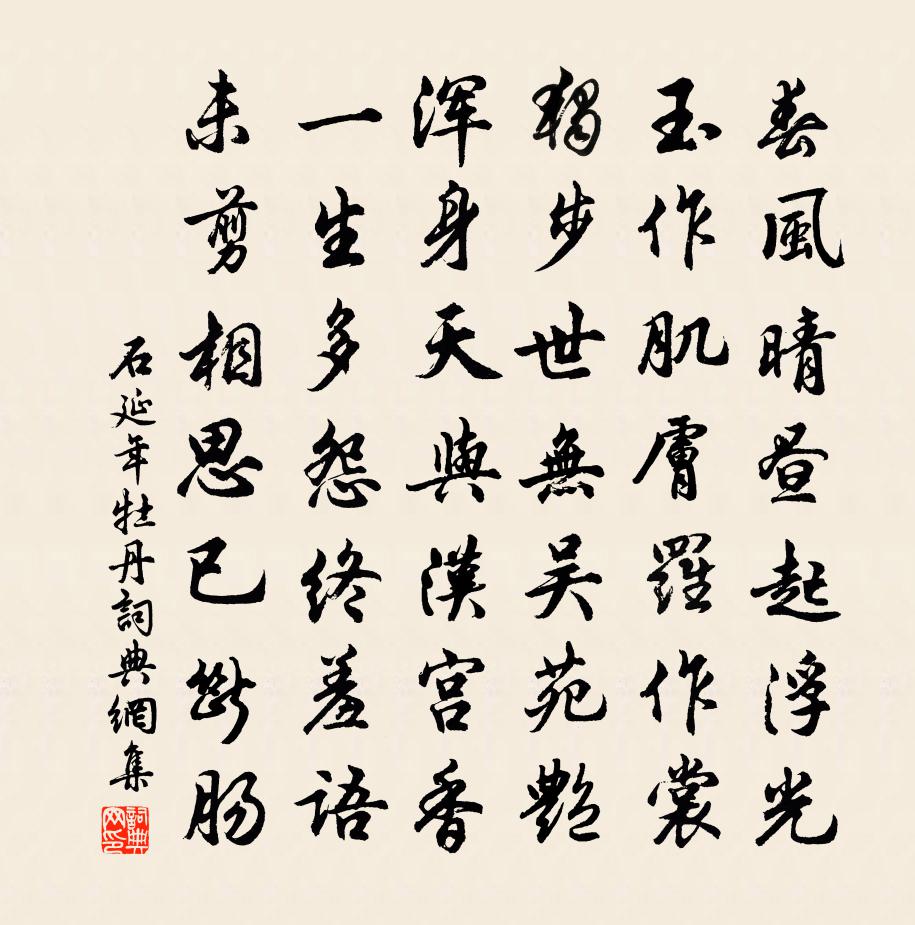 春風晴昼起浮光
玉作肌膚羅作裳
獨步世無吴苑艷
渾身天與漢宫香
一生多怨終羞語
未剪相思已斷肠
石延年牡丹詞典網集
詞典網印